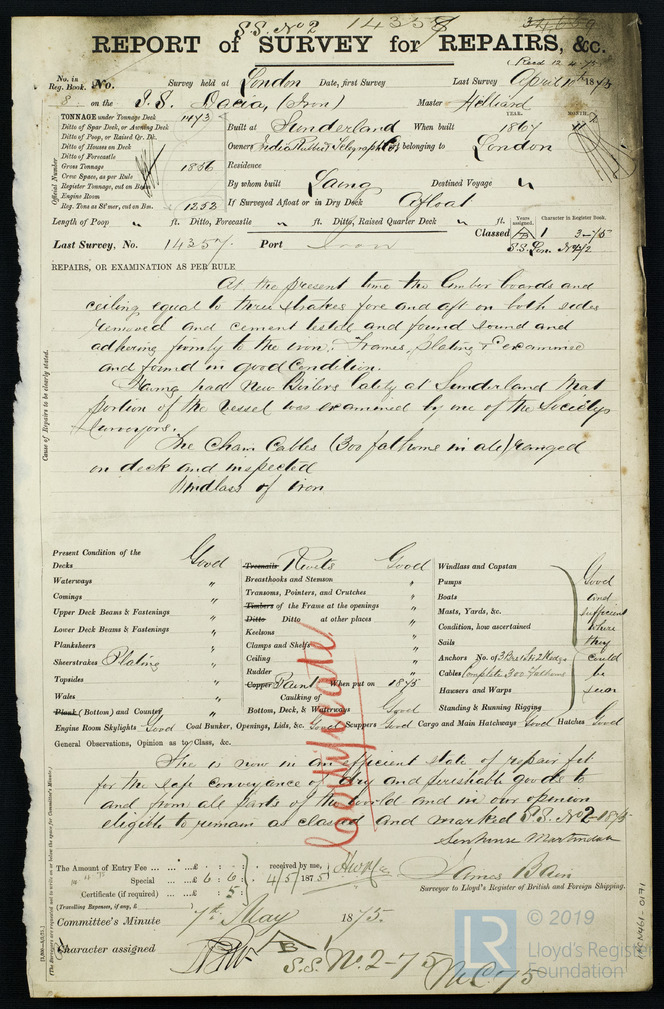 S.S. No 2 14358
REPORT of SURVEY for REPAIRS, &c.
No. in Reg. Book. No. Survey held at London Date, first Survey Last Survey April 10th 1875
8 on the S.S. Dacia, (Iron) Master Hilliard
TONNAGE under Tonnage Deck 1473
Ditto of Spar Deck, or Awning Deck
Ditto of Poop, or Raised Qr. Dk.
Ditto of Houses on Deck
Ditto of Forecastle
Gross Tonnage 1856
Crew Space, as per Rule
Register Tonnage, cut on Beam
Engine Room
Reg. Tons as St'mer, cut on Bm. 1252
Official Number
YEAR. MONTH.
Built at Sunderland When built 1867
Owners India Rubber Telegraph Co. belonging to London
Residence
By whom built Laing Destined Voyage "
If Surveyed Afloat or in Dry Dock Afloat
Length of Poop " ft. Ditto, Forecastle " ft. Ditto, Raised Quarter Deck " ft.
Years assigned. Character in Register Book.
Classed 1 3-75
S.S. Lon. No
Last Survey, No. 14357. Port Iron
REPAIRS, OR EXAMINATION AS PER RULE
Cause of Repairs to be clearly stated.
At the present time the limber boards and
ceiling equal to three strakes fore and aft on both sides
removed and cement tested and found sound and
adhering firmly to the iron. Frames, plating &c examined
and found in good Condition.
Having had New Boilers lately at Sunderland that
portion of the vessel was examined by one of the Society's
Surveyors.
The Chain Cables (300 fathoms in all) ranged
on deck and inspected
Windlass of iron
Present Condition of the
Decks Good
Waterways "
Comings "
Upper Deck Beams & Fastenings "
Lower Deck Beams & Fastenings "
Planksheers "
Sheerstrakes Plating "
Topsides "
Wales "
Plank (Bottom) and Counter "
Treenails Rivets Good
Breasthooks and Stemson "
Transoms, Pointers, and Crutches "
Timbers of the Frame at the openings "
Ditto Ditto at other places "
Keelsons "
Clamps and Shelfs "
Ceiling "
Rudder "
Copper Paint When put on 1875
Caulking of
Bottom, Deck, & Waterways Good
Windlass and Capstan
Pumps
Boats
Masts, Yards, &c.
Condition, how ascertained
Sails
Anchors No. of 3 Brs 1 Str 2 Kedge
Cables Complete 300 Fathoms
Hausers and Warps
Standing & Running Rigging
Good
and
sufficient
where
they
could
be
seen
Engine Room Skylights Good Coal Bunker, Openings, Lids, &c. Good Scuppers Good Cargo and Main Hatchways Good Hatches Good
General Observations, Opinion as to Class, &c.
She is now in an efficient state of repair fit
for the safe conveyance of dry and perishable goods to
and from all parts of the world and in our opinion
eligible to remain as classed and marked S.S. No 2-1875
Certificate.
The Amount of Entry Fee ... £ : :
Special ... £ 6 : 6 :
Certificate (if required) ... £ : 5 :
(Travelling Expenses, if any, £ )
received by me,
4/5/1875
James Bain
Surveyor to Lloyd's Register of British and Foreign Shipping.
Committee's Minute 7th May 1875.
Character assigned A B 1
S.S. No. 2-75
M.C. 75
© 2019
LR
Lloyd's Register
Foundation